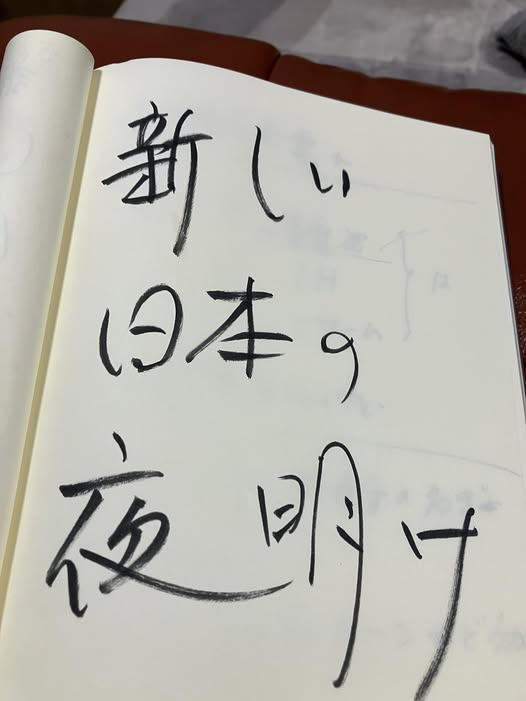 新しい
日本の
夜明け